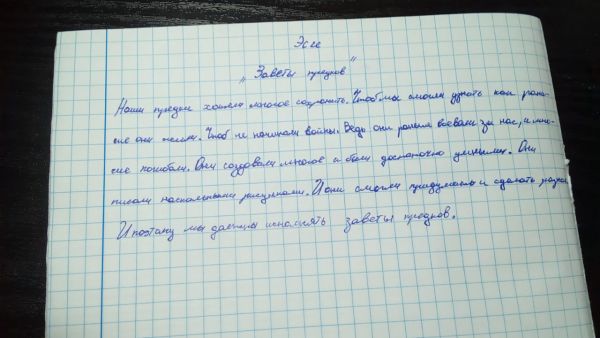 Эссе
„Заветы предков"
Наши предки хотели многое сохранить. Чтоб мы смогли узнать как рань-
ше они жили. Чтоб не начинали войны. Ведь они раньше воевали за нас, и мно-
гие погибли. Они создовали многое и были достаточно умными. Они
писали наскальными рисунками. И они смогли придумать и сделать
И поэтому мы должны исполнять заветы предков.